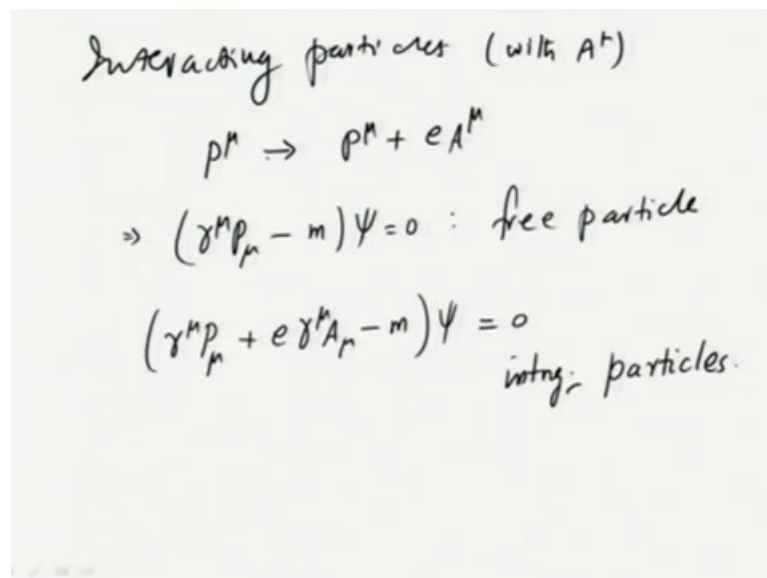 Interacting particles (with A^μ)
p^μ → p^μ + e A^μ
⇒ (γ^μ p_μ − m) ψ = 0 : free particle
(γ^μ p_μ + e γ^μ A_μ − m) ψ = 0
intng. particles.